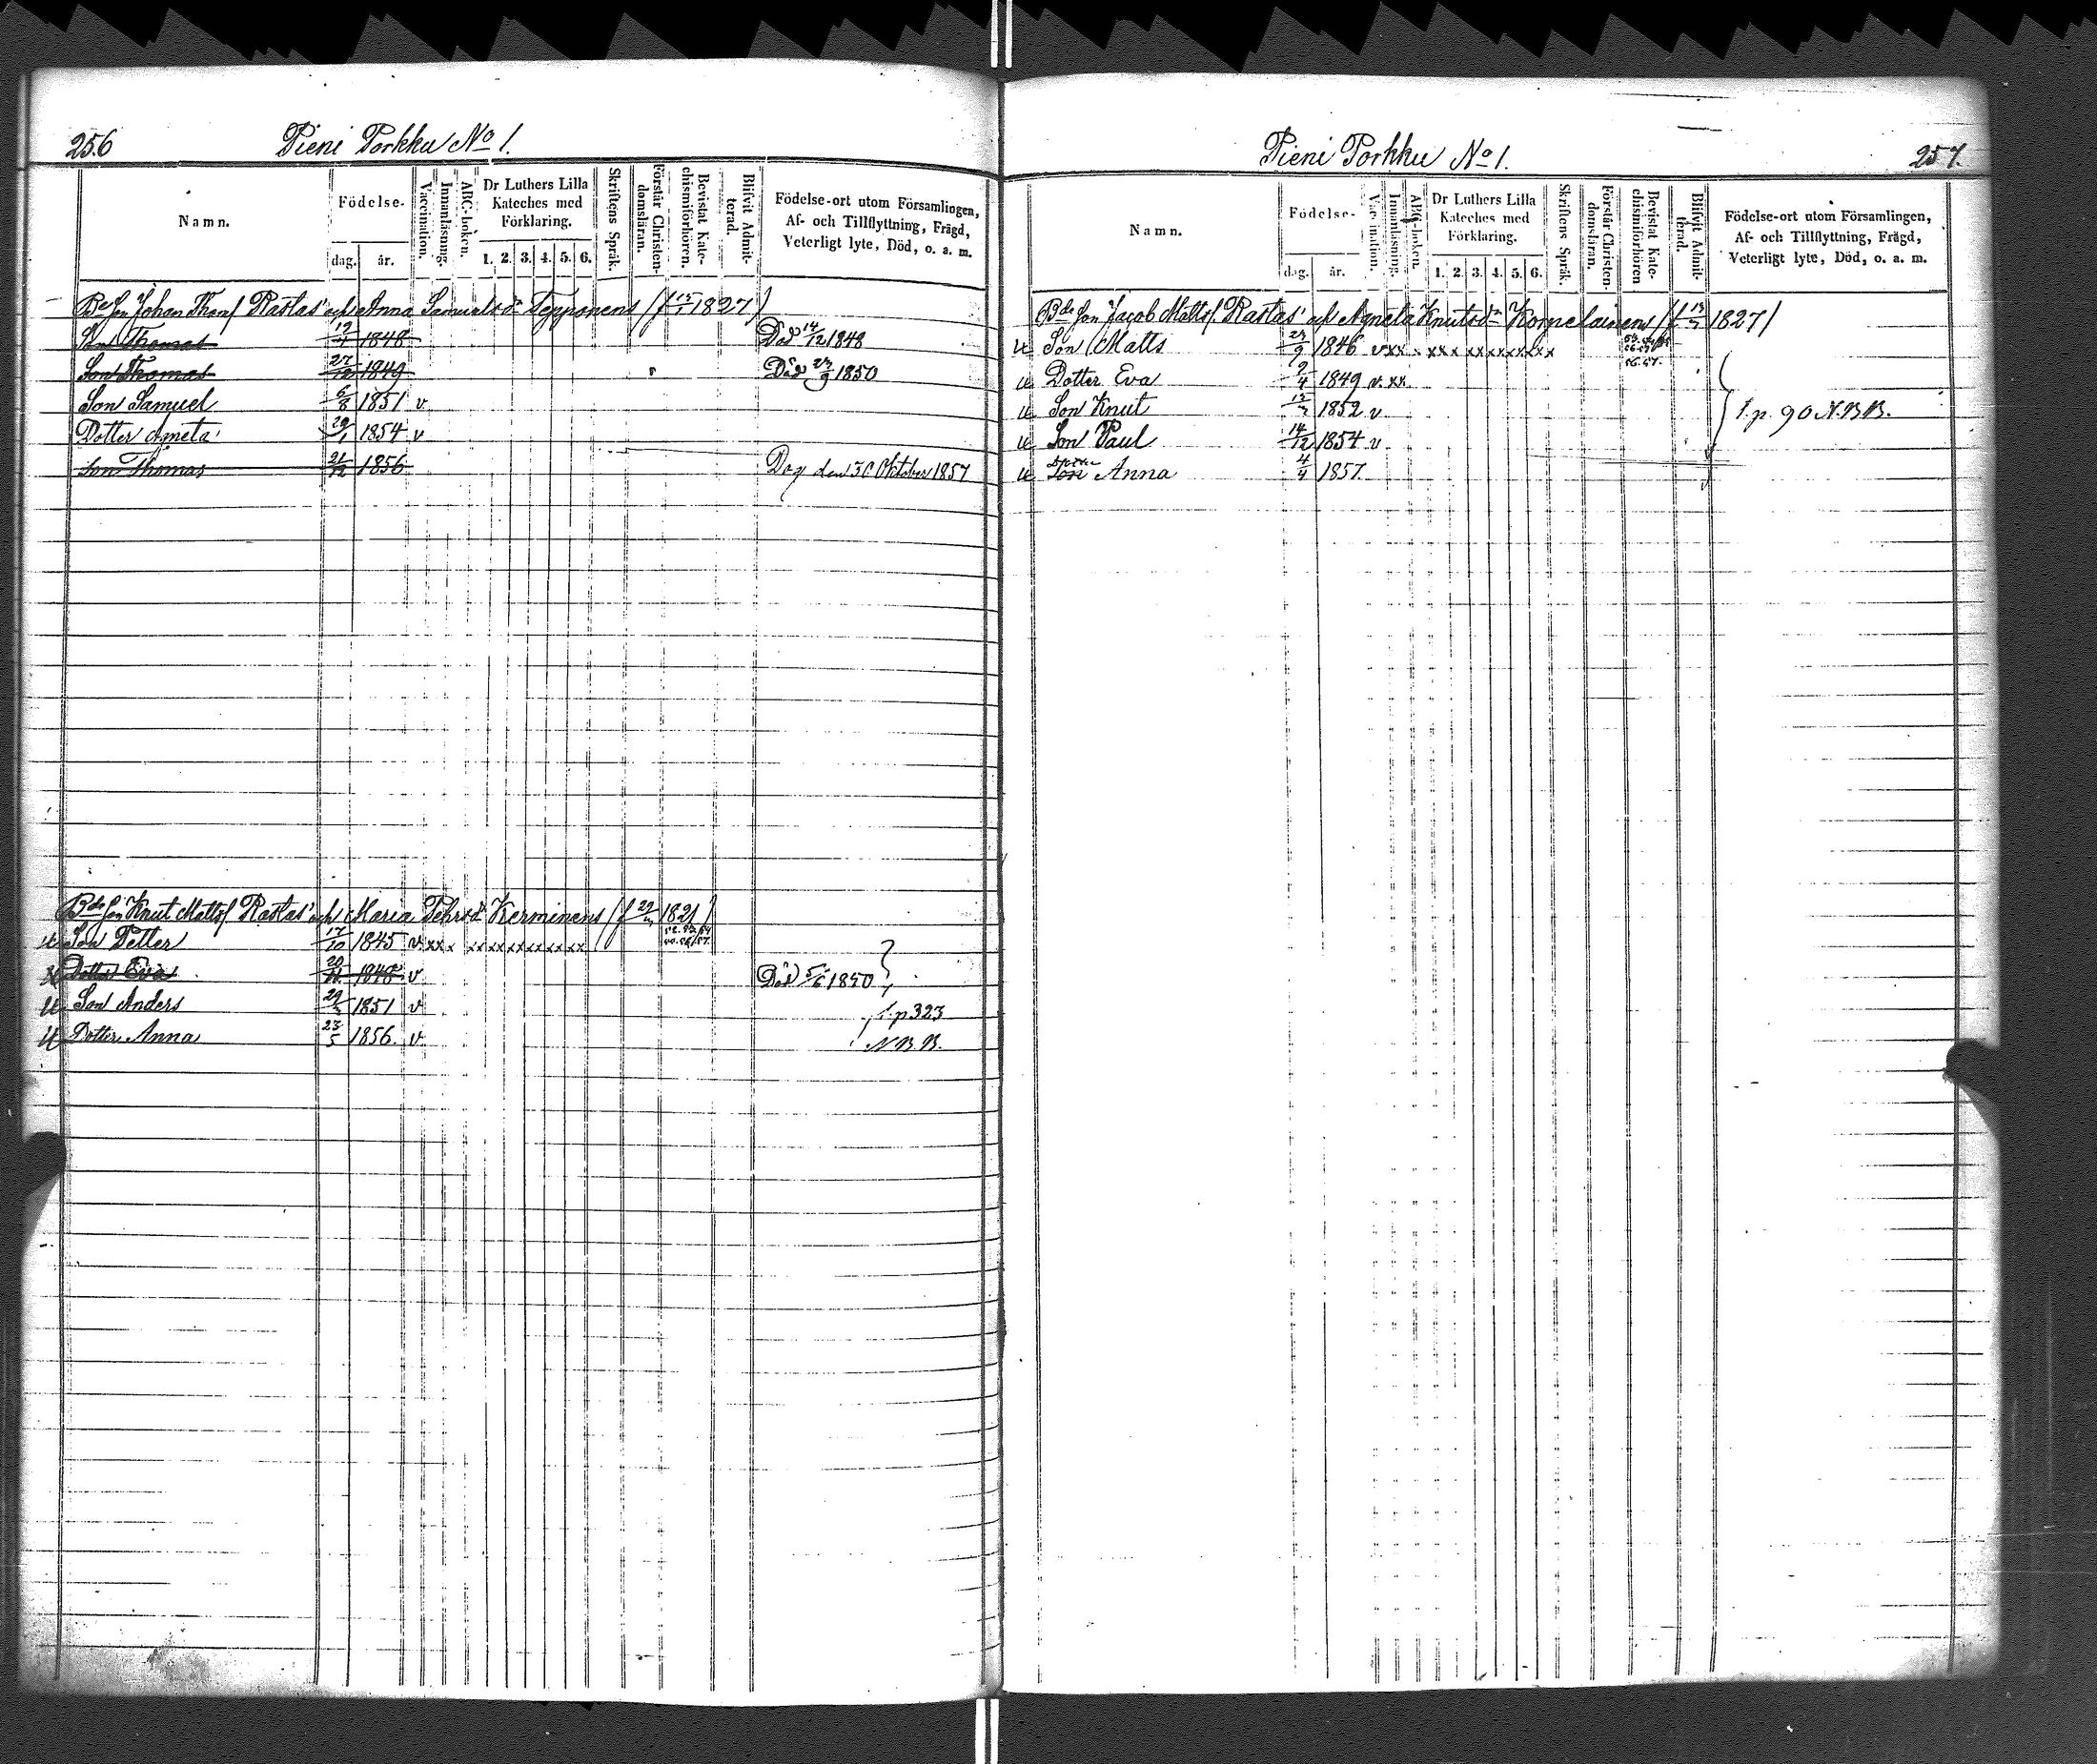 256
Pieni Porkku No 1.
Namn.
Födelse-
dag.
år.
Vaccination.
Innanläsning.
ABC-boken.
Dr Luthers Lilla
Kateches med
Förklaring.
1. 2. 3. 4. 5. 6.
Skriftens Språk.
Förstår Christen-
domsläran.
Bevistat Kate-
chismiförhören.
Blifvit Admit-
terad.
Födelse-ort utom Församlingen,
Af- och Tillflyttning, Frägd,
Veterligt lyte, Död, o. a. m.
Johan Rastas Anna Samuelsdr Tepponens 1827
Son Thomas 1848 Död 14/12 1848
Son Thomas 27/12 1849 Död 1850
Son Samuel 6/8 1851 v
Dotter Agneta 1854 v
Son Thomas 21/12 1856 den 30 Oktober 1857
Knut Matts Rastas Maria Pehrsdr Kerminens 1821
Son Petter 17/10 1845 v xxx xxxxxxxxxx
Dotter Eva v Död 5/6 1850
Son Anders 1851 v f. p 323
Dotter Anna 23/5 1856 v N.B.B.
Pieni Porkku No 1.
257.
Namn.
Födelse-
dag.
år.
Vaccination.
Innanläsning.
ABC-boken.
Dr Luthers Lilla
Kateches med
Förklaring.
1. 2. 3. 4. 5. 6.
Skriftens Språk.
Förstår Christen-
domsläran.
Bevistat Kate-
chismiförhören
Blifvit Admit-
terad.
Födelse-ort utom Församlingen,
Af- och Tillflyttning, Frägd,
Veterligt lyte, Död, o. a. m.
Jacob Matts Rastas Agneta Knutsdr 1827
Son Matts 1846 v xx xxx xxxxxxxxx
Dotter Eva 9/4 1849 v xx
Son Knut 1852 v f. p. 90 N.B.B.
Son Paul 14/12 1854 v
Anna 4/4 1857.